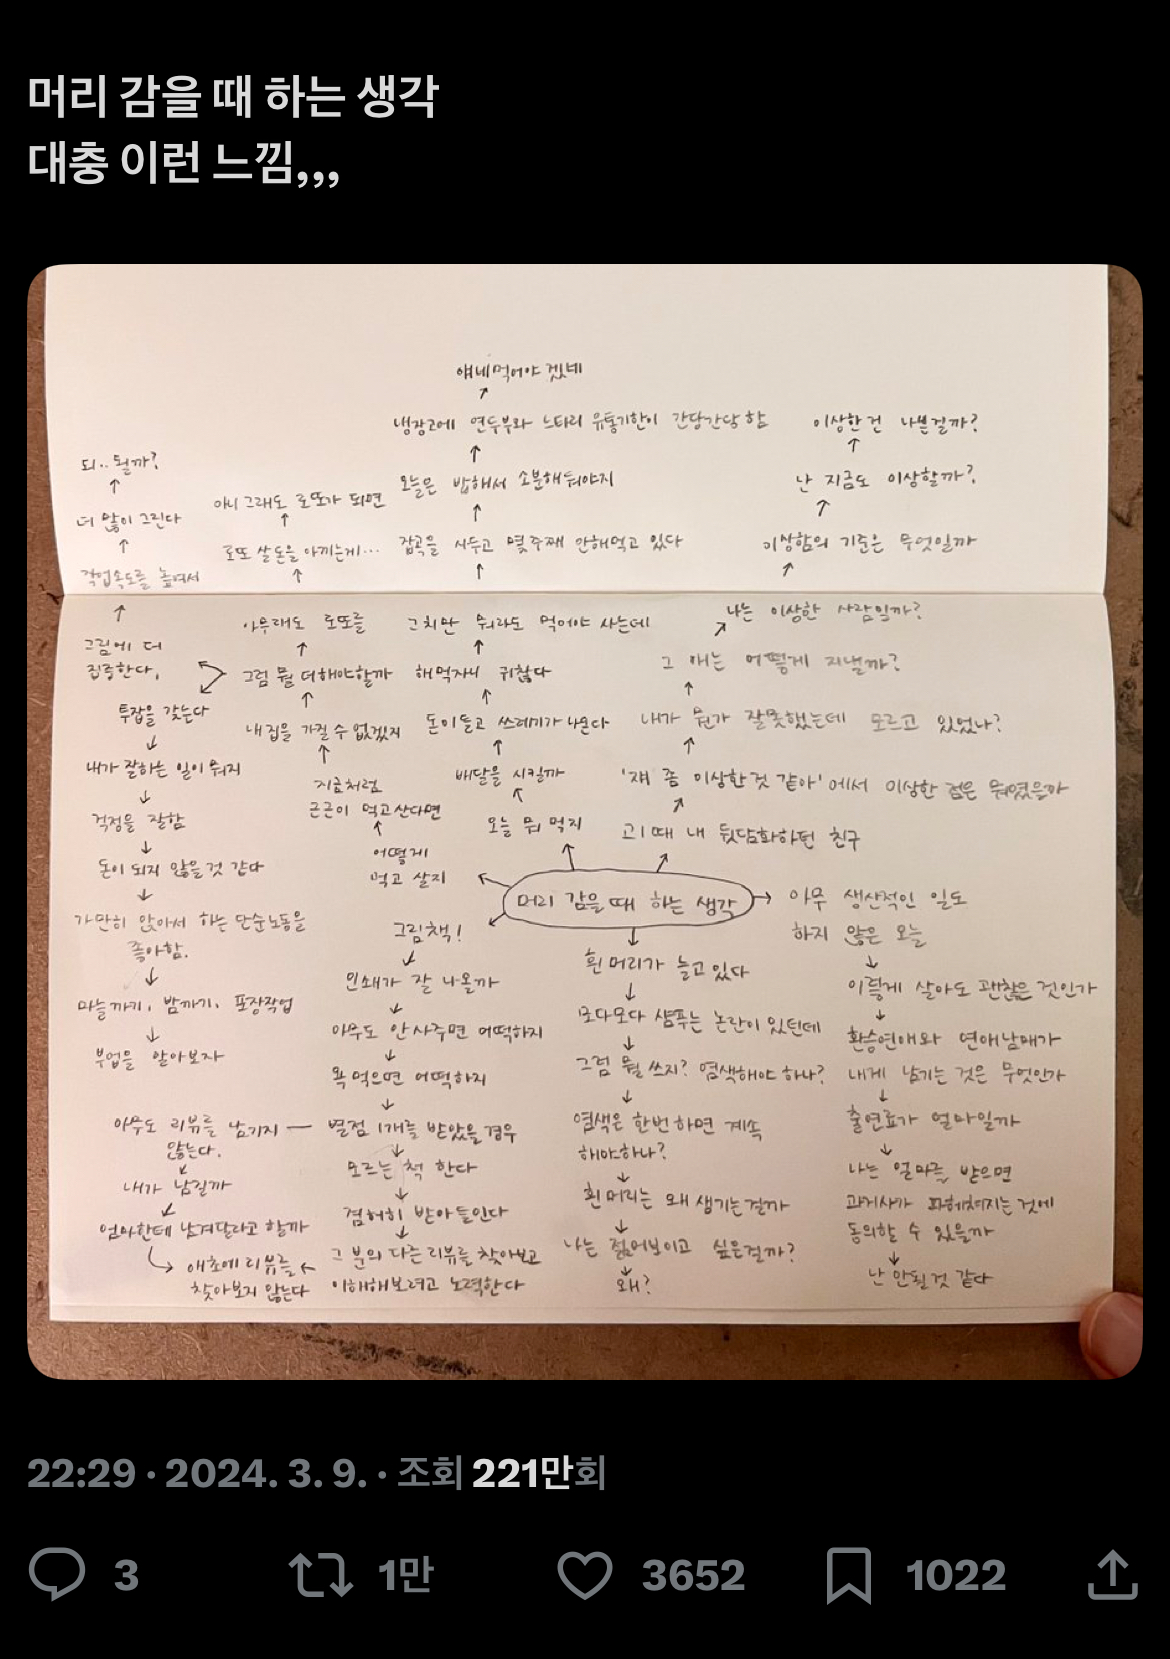 머리 감을 때 하는 생각
대충 이런 느낌,,,
얘네먹어야겠네
냉장고에 연두부와 느타리 유통기한이 간당간당 함
오늘은 밥해서 소분해둬야지
잡곡을 사두고 몇주째 안해먹고 있다
그치만 뭐라도 먹어야 사는데
해먹자니 귀찮다
돈이들고 쓰레기가 나온다
배달을 시킬까
오늘 뭐 먹지
이상한건 나쁜걸까?
난 지금도 이상할까?
이상함의 기준은 무엇일까
나는 이상한 사람일까?
그 애는 어떻게 지낼까?
내가 뭔가 잘못했는데 모르고 있었나?
'쟤 좀 이상한것 같아'에서 이상한 점은 뭐였을까
고1때 내 뒷담화하던 친구
되.. 될까?
더 많이 그린다
작업속도를 높여서
그림에 더
집중한다,
아니 그래도 로또가 되면
로또 살돈을 아끼는게…
아무래도 로또를
그럼 뭘 더해야할까
내집을 가질 수 없겠지
지금처럼
근근이 먹고산다면
어떻게
먹고 살지
투잡을 갖는다
내가 잘하는 일이 뭐지
걱정을 잘함
돈이 되지 않을것 같다
가만히 앉아서 하는 단순노동을
좋아함.
마늘까기, 밤까기, 포장작업
부업을 알아보자
머리 감을때 하는 생각
그림책!
인쇄가 잘 나올까
아무도 안사주면 어떡하지
욕먹으면 어떡하지
별점 1개를 받았을경우
모르는 척 한다
겸허히 받아들인다
그 분의 다른리뷰를 찾아보고
이해해보려고 노력한다
아무도 리뷰를 남기지
않는다.
내가 남길까
엄마한테 남겨달라고 할까
애초에 리뷰를
찾아보지 않는다
흰머리가 늘고있다
모다모다 샴푸는 논란이 있던데
그럼 뭘 쓰지? 염색해야 하나?
염색은 한번하면 계속
해야하나?
흰머리는 왜 생기는걸까
나는 젊어보이고 싶은걸까?
왜?
아무 생산적인 일도
하지 않은 오늘
이렇게 살아도 괜찮은 것인가
환승연애와 연애남매가
내게 남기는 것은 무엇인가
출연료가 얼마일까
나는 얼마를 받으면
과거사가 파헤쳐지는것에
동의할 수 있을까
난 안될것 같다
22:29 · 2024. 3. 9. · 조회 221만회
3 1만 3652 1022